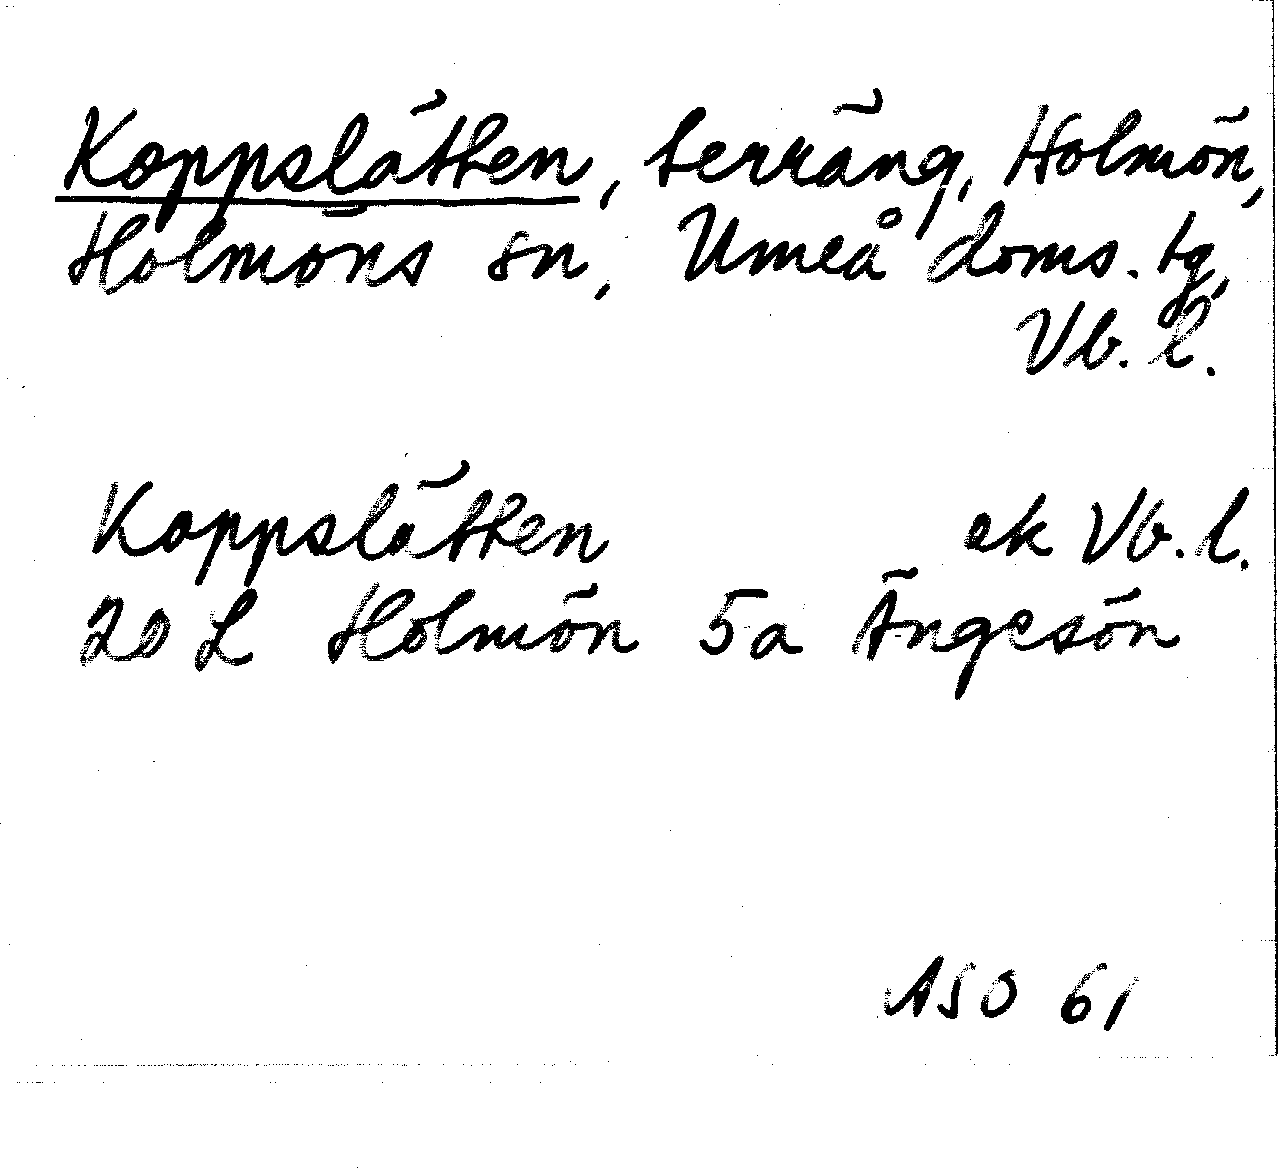 Koppslätten, terräng, Holmön,
Holmöns sn, Umeå doms. tg,
Vb. l.
Koppslätten ek Vb. l.
20 L Holmön 5a Ängesön
ASO 61